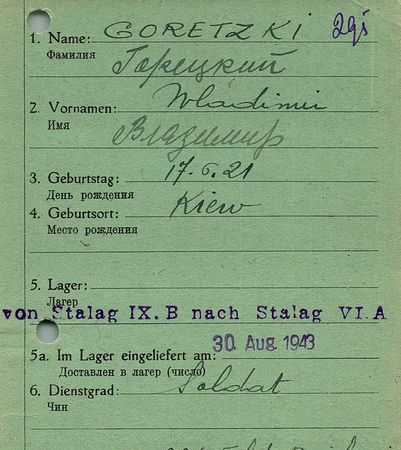 1. Name: GORETZKI
Фамилия Горецкий
2. Vornamen: Wladimir
Имя
Владимир
3. Geburtstag: 17.6.21
День рождения
4. Geburtsort: Kiew
Место рождения
5. Lager:
Лагер
von Stalag IX.B nach Stalag VI.A
30. Aug. 1943
5a. Im Lager eingeliefert am:
Доставлен в лагер (число)
6. Dienstgrad: Soldat
Чин